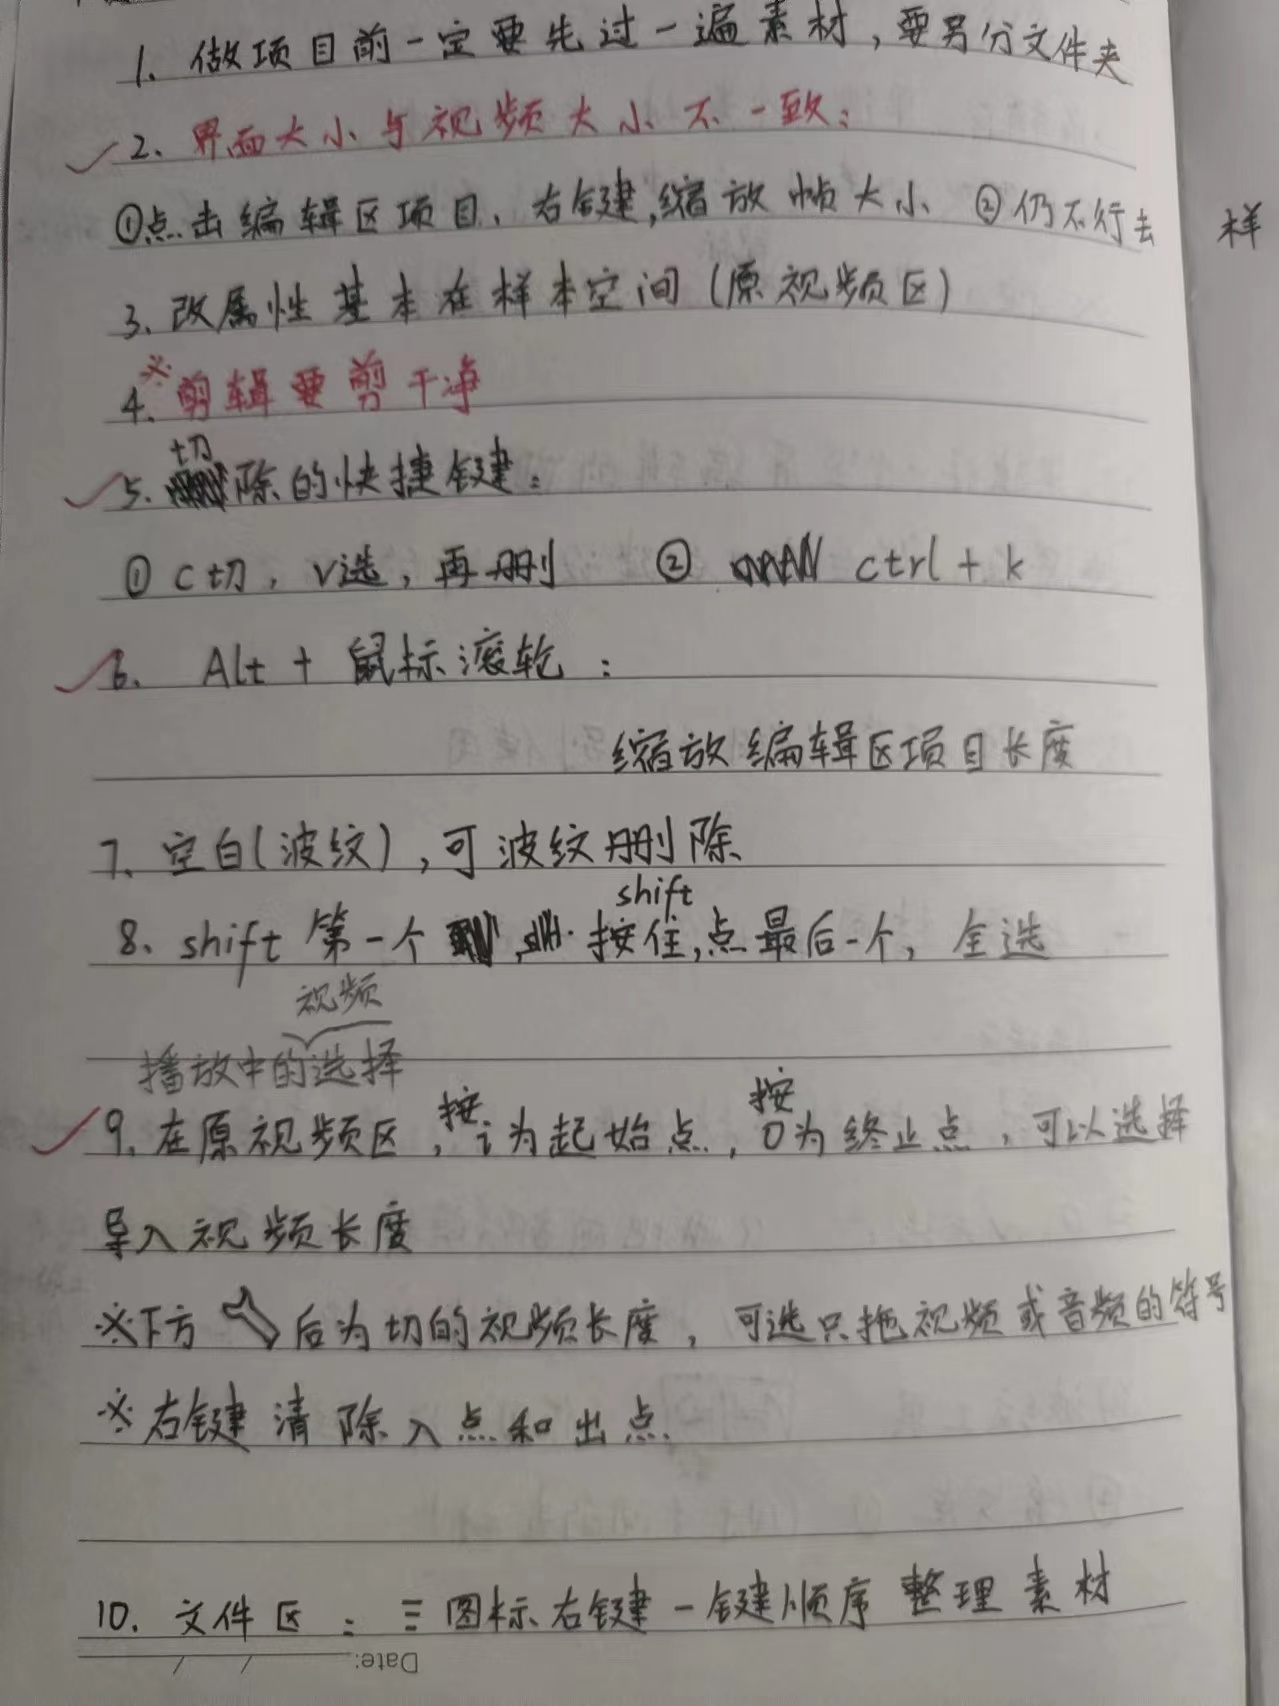 1. 做项目前一定要先过一遍素材，要另分文件夹
2. 界面大小与视频大小不一致：
①点击编辑区项目，右键，缩放帧大小 ②仍不行去 样
3. 改属性基本在样本空间（原视频区）
※
4. 剪辑要剪干净
切
5. 除的快捷键：
① C切，V选，再删 ② ctrl + k
6. Alt + 鼠标滚轮：
缩放编辑区项目长度
7. 空白（波纹），可波纹删除
shift
8. shift 第一个，按住，点最后一个，全选
视频
播放中的选择
按 按
9. 在原视频区，i为起始点，O为终止点，可以选择
导入视频长度
※下方 后为切的视频长度，可选只拖视频或音频的符号
※右键清除入点和出点
10. 文件区：三图标右键一键顺序整理素材
Date: